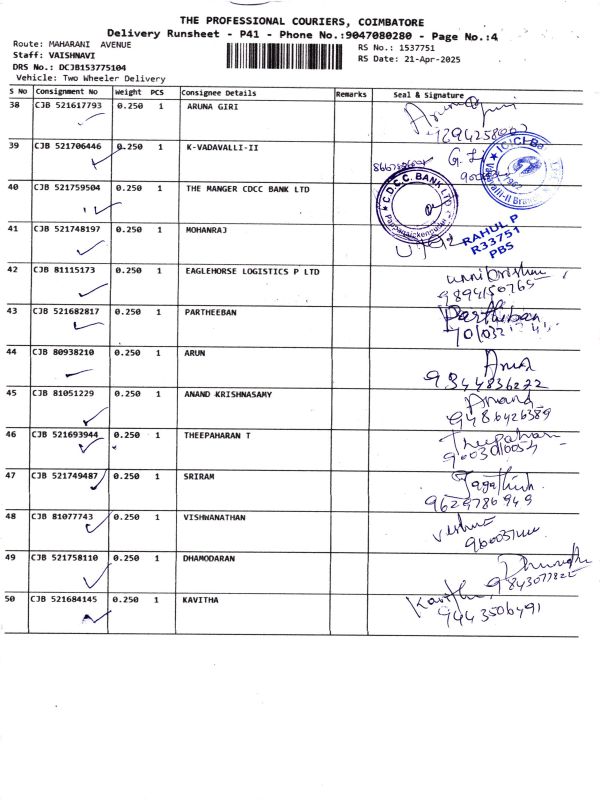 THE PROFESSIONAL COURIERS, COIMBATORE
Delivery Runsheet - P41 - Phone No.:9047080280 - Page No.:4
Route: MAHARANI AVENUE
RS No.: 1537751
Staff: VAISHNAVI
RS Date: 21-Apr-2025
DRS No.: DCJB153775104
Vehicle: Two Wheeler Delivery
S No Consignment No Weight PCS Consignee Details Remarks Seal & Signature
38 CJB 521617793 0.250 1 ARUNA GIRI
39 CJB 521706446 0.250 1 K-VADAVALLI-II
40 CJB 521759504 0.250 1 THE MANGER CDCC BANK LTD
C.D.C.C. BANK LTD
41 CJB 521748197 0.250 1 MOHANRAJ
RAHUL P
R33751
PBS
42 CJB 81115173 0.250 1 EAGLEHORSE LOGISTICS P LTD
9894150765
43 CJB 521682817 0.250 1 PARTHEEBAN
Partheban
44 CJB 80938210 0.250 1 ARUN
Arun
9344836222
45 CJB 81051229 0.250 1 ANAND KRISHNASAMY
Anand
9486426389
46 CJB 521693944 0.250 1 THEEPAHARAN T
Theepaharan
47 CJB 521749487 0.250 1 SRIRAM
9629786949
48 CJB 81077743 0.250 1 VISHWANATHAN
49 CJB 521758110 0.250 1 DHAMODARAN
50 CJB 521684145 0.250 1 KAVITHA
Kavitha
9443506491